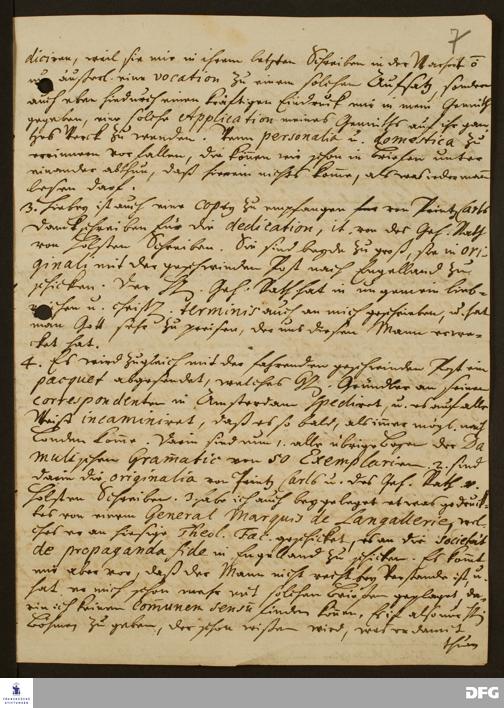 7
diciren, weil sie mir in ihrem letzten Schreiben in der Warheit
nur äußerl. eine vocation zu einem solchen Aufsatz, sondern
auch eben hiedurch einen kräftigen Eindruck mir in mein Gemüth
gegeben, eine solche Application meines Gemüths auf ihr gan-
tzes Werck zu wenden. Wenn personalia u. domestica zu
erinnern vorfallen, die können wir schon in briefen unter
einander abthun, daß hierein nichts komme, als was iederman
lesen darf.
3. Hiebey ist auch eine copey zu empfangen von Printz Carls
Danckschreiben für die dedication, it. von des Geh. Rath
von Schreiben. Sie sind beyde zu groß, sie in ori-
ginali mit der geschwinden Post nach Engelland zu
schicken. Der H. Geh. Rath hat in ungemein lieb-
reichen u. christl. terminis auch an mich geschrieben, u. hat
man Gott sehr zu preisen, der uns diesen Mann erwe-
cket hat.
4. Es wird zugleich mit der fahrenden geschwinden Post ein
pacquet abgesendet, welches H. Gründler an seinen
correspondenten in Amsterdam spediret, u. es auf alle
Weise incaminiret, daß es so bald, als immer mögl. nach
Londen komme. Darin sind nun 1. alle übrige bogen der Da-
mulischen Gramatic von 50 Exemplarien. 2. sind
darin die originalia von Printz Carls u. des Geh. Rath v.
Schreiben. 3. habe ich auch beygeleget etwas gedruck-
tes von einem General Marquis de Langallerie, wel-
ches er an hiesige Theol. Fac. geschicket, es an die Societät
de propaganda fide in Engelland zu schicken. Es kommt
mir aber vor, daß der Mann nicht recht bey Verstande ist, u.
hat er mich schon mehr mit solchen briefen geplaget, da-
rin ich keinen comunem sensum finden können. Es ist also nur H.
Böhmen zu geben, der schon wissen wird, was er damit
thun
FRANCKESCHE
STIFTUNGEN
DFG